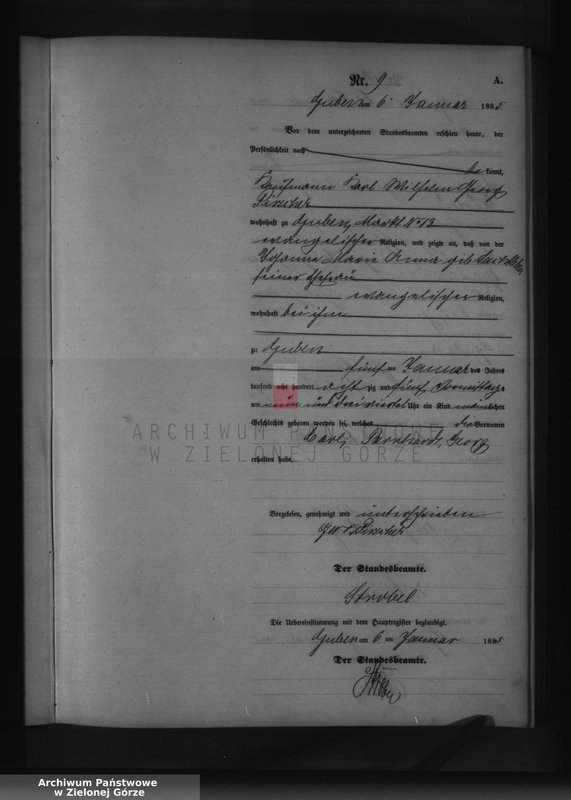 Nr. 9
A.
Guben am 6 Januar 1885
Vor dem unterzeichneten Standesbeamten erschien heute, der
Persönlichkeit nach
be kannt,
Kaufmann Karl Wilhelm Georg
wohnhaft zu Guben, Markt No 13
evangelischer Religion, und zeigte an, daß von der
Johanne Marie Anna geb.
seiner Ehefrau
evangelischer Religion,
wohnhaft bei ihm
zu Guben
am fünf ten Januar des Jahres
tausend acht hundert acht zig und fünf, Vormittags
um neun und dreiviertel Uhr ein Kind männlichen
Geschlechts geboren worden sei, welches die Vornamen
Carl, Bernhardt, Georg
erhalten habe.
ARCHIWUM PAŃSTWOWE
W ZIELONEJ GÓRZE
Vorgelesen, genehmigt und unterschrieben
Der Standesbeamte.
Strobel
Die Uebereinstimmung mit dem Hauptregister beglaubigt.
Guben am 6 ten Januar 1885
Der Standesbeamte.
Archiwum Państwowe
w Zielonej Górze